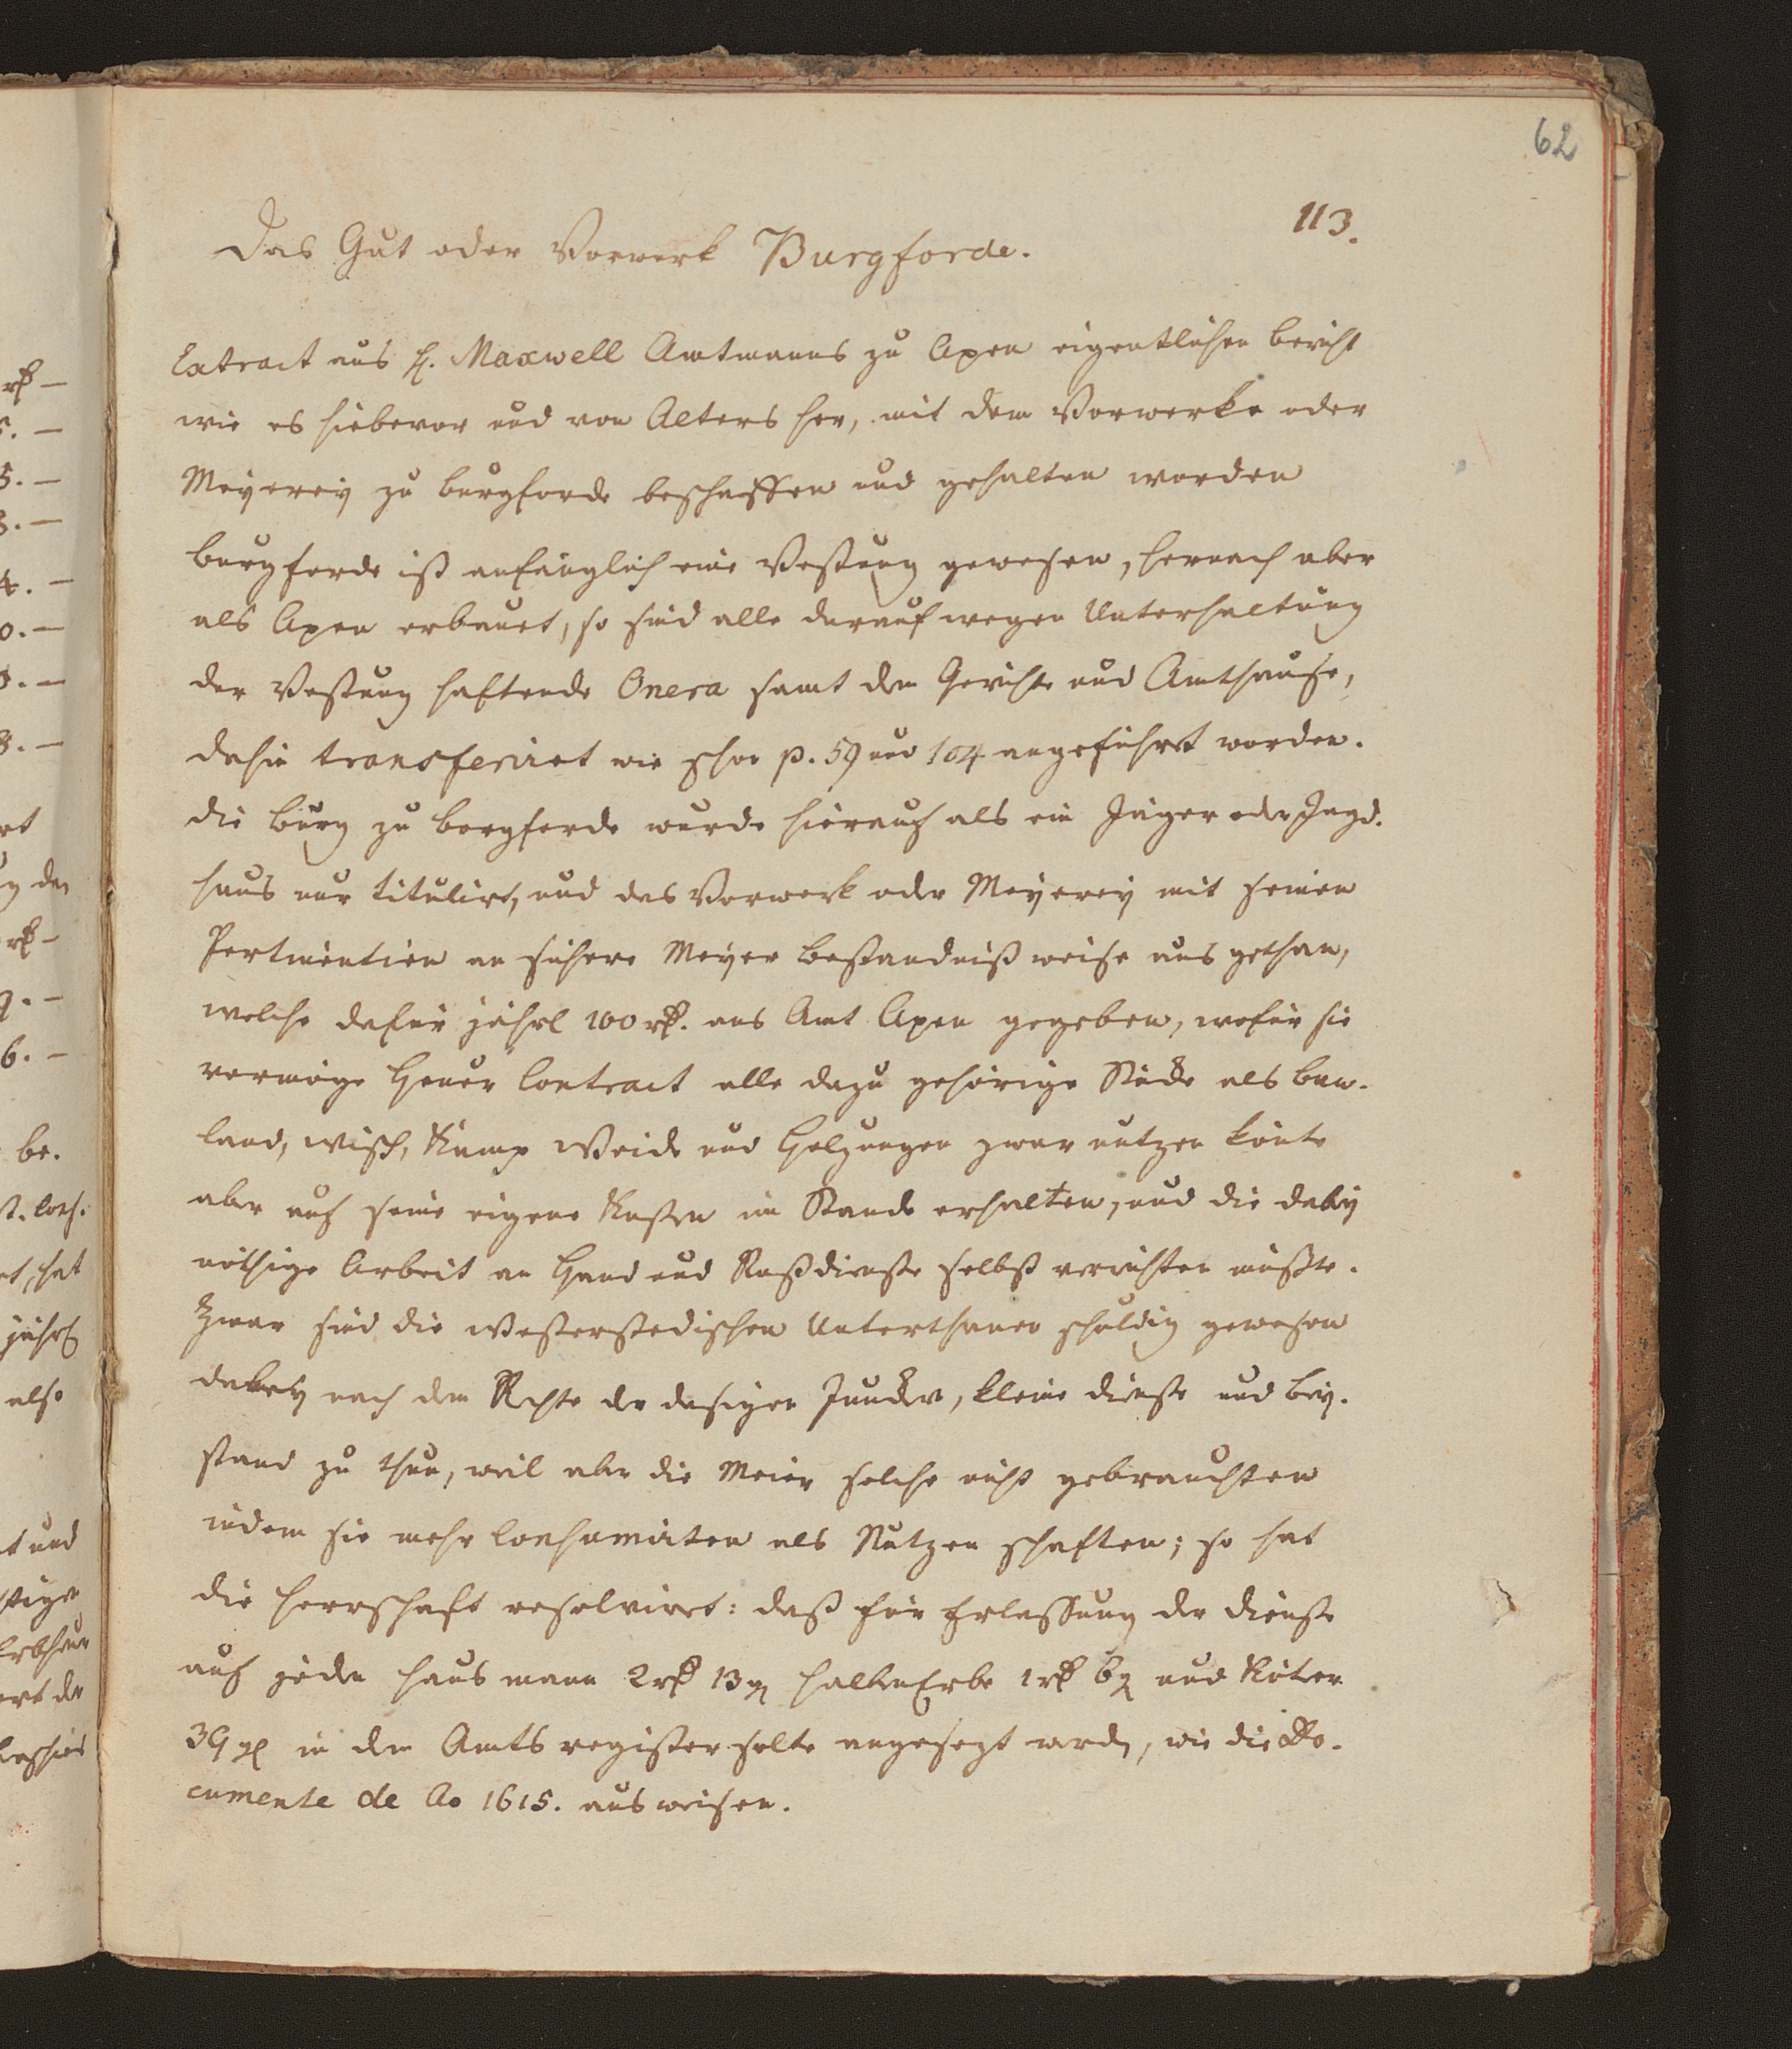 62
113.
Das Gut oder Vorwerk Burgforde.
Extract aus H. Maxwell Amtmanns zu Apen eigentlichen bericht
wie es hiebevor und von Alters her, mit dem Vorwerke oder
Meyerey zu burgforde beschaffen und gehalten worden
burgforde ist anfänglich eine Vestung gewesen, hernach aber
als Apen erbauet, so sind alle darauf wegen Unterhaltung
der Vestung haftende Onera samt dem Gerichte und Amthause,
dahin transferiret wie schon p. 59 und 104 angeführt worden.
die burg zu borgforde wurde hierauf als ein Jäger oder Jagd.
haus nur titulirt, und das Vorwerk oder Meyerey mit seinen
Pertinentien an sichere Meyer bestandniß weise aus gethan,
welche dafür jährl 100 rß. ans Amt Apen gegeben, wofür sie
vermöge Heuer Contract alle dazu gehörige Stücke als bau-
land, wisch, Kamp Weide und Holzungen zwar nutzen könte
aber auf seine eigene Kosten im Stande erhalten, und die dabey
nöthige Arbeit an Hand und Roßdienste selbst verrichten müßte.
Zwar sind die Westerstedischen Unterthanen schuldig gewesen
dabey nach dem Rechte der dasigen Juncker, kleine dienste und bey.
stand zu thun, weil aber die Meier solche nicht gebrauchten
indem sie mehr Consumirten als Nutzen schaften; so hat
die Herrschaft resolviret: daß für Erlassung der dienste
auf jeden Hausmann 2 rß 13 g halbe Erbe 1 rß 6 g und Köter
39 g in dem Amts register solte angesezt werden, wie die Do-
cumente de Ao 1615. ausweisen.